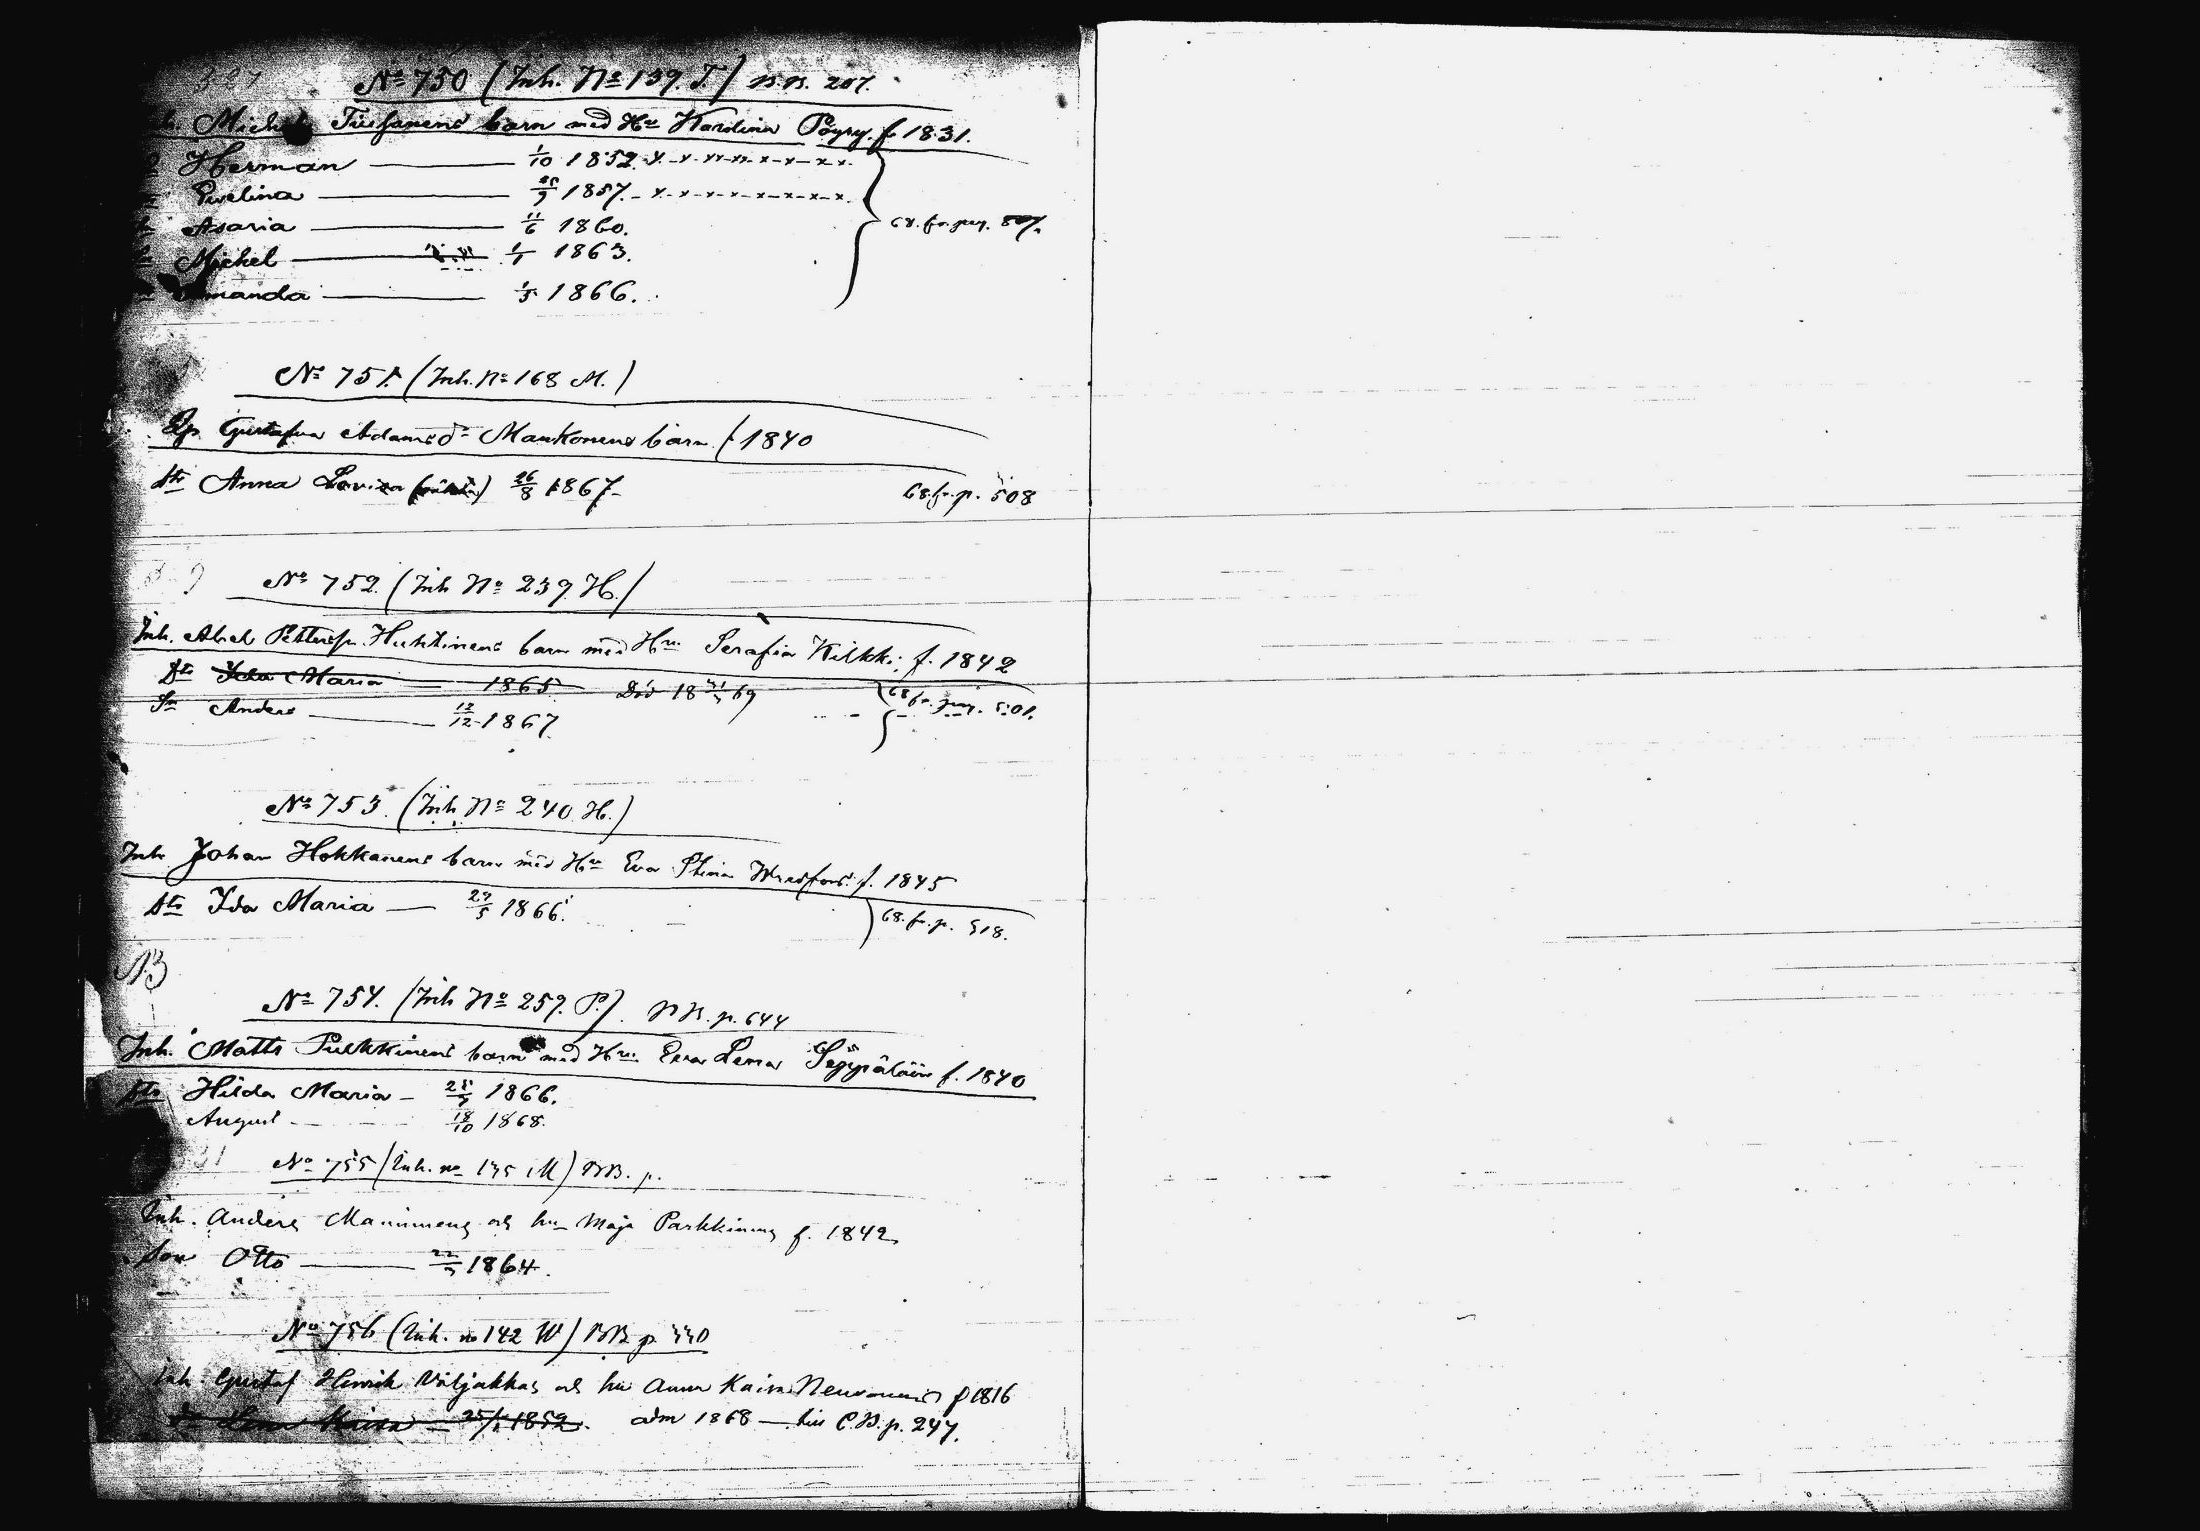 337
No 750 (Inh. No 139. T.) B.B. 207.
Michel Tiihanens barn med Hu Karolina Pöyry. f. 1831.
Herman — 1/10 1852.
Evelina — 25/9 1857.
Asaria — 11/6 1860. 68. fr. pag. 507.
Michel — 1/1 1863.
Amanda — 1/5 1866.
No 751. (Inh. No 168 M.)
Ep. Gustafva Adamsdr Maukonens barn. f. 1840
dtr Anna Lovisa 26/8 1867 68. fr. p. 508
No 752. (Inh No 239. H.)
Inh. Abel Pettersn Huhtinens barn med Hu. Serafia Kilkki, f. 1842
Dtr Ida Maria — 1865 Död 18 69 68 fr. pag. 501.
Sn Anders — 12/12 1867
No 753. (Inh. No 240. H.)
Inh Johan Hokkanens barn med Hu Eva Stina f. 1845
dtr Ida Maria — 27/5 1866. 68. fr. p. 518.
NB
No 754. (Inh No 259. P.) BB. p. 644
Inh. Matts Pulkkinens barn med Hu. Eva Lena Seppäläin f. 1840
dtr Hilda Maria — 1866.
August 18/10 1868.
31
No 755 (Inh. no 135 M) BB. p.
Inh. Anders Manninens och hu Maja Parkkinens f. 1842
Son Otto — 1864.
No 756 (Inh. no 142 W) BB p 330
Inh. Gustaf Henrik Väljakkas och hu Anna Kaisa Neuvonens f 1816
dr Lena Kaisa — 1852. adm 1868 — hus C.B. p. 247.